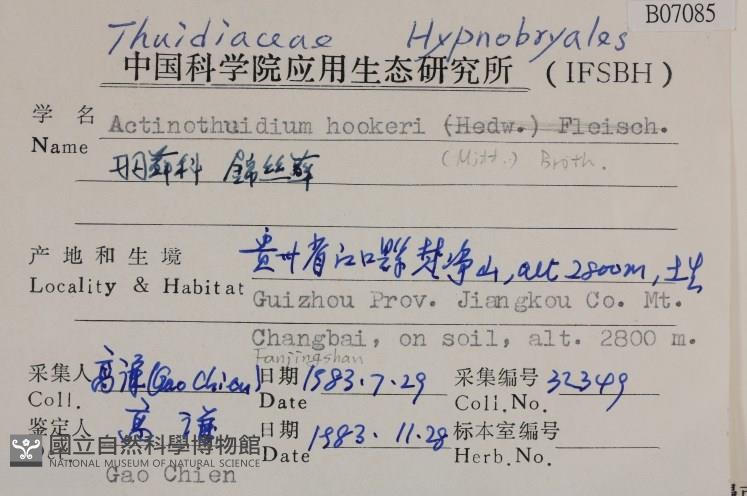 B07085
Thuidiaceae Hypnobryales
中国科学院应用生态研究所 (IFSBH)
学名 Actinothuidium hookeri (Hedw.) Fleisch.
Name
(Mitt.) Broth.
羽藓科 錦丝藓
产地和生境 贵州省江口縣梵净山, alt 2800m, 土生
Locality & Habitat Guizhou Prov. Jiangkou Co. Mt.
Changbai, on soil, alt. 2800 m.
Fanjingshan
采集人 高谦(Gao Chien) 日期 1983.7.29 采集编号 32349
Coll. Date Coll.No.
鉴定人 高谦 日期 1983.11.28 标本室编号
Date Herb.No.
國立自然科學博物館
NATIONAL MUSEUM OF NATURAL SCIENCE
Gao Chien